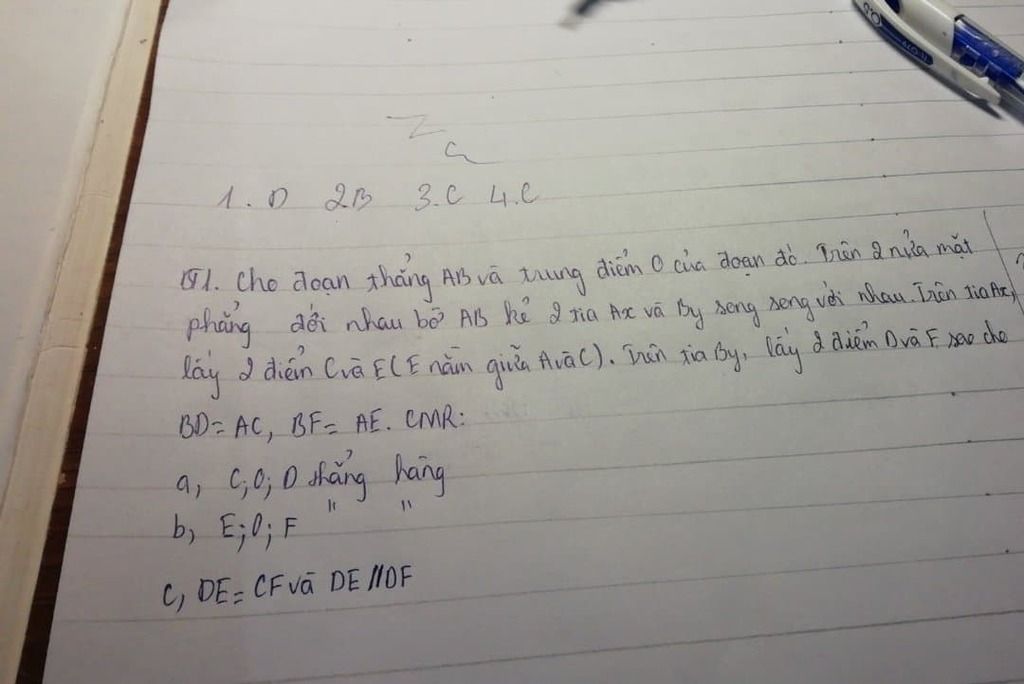 1. D 2B 3.C 4.C
B1. Cho đoạn thẳng AB và trung điểm O của đoạn đó. Trên 2 nửa mặt
phẳng đối nhau bờ AB kẻ 2 tia Ax và By song song với nhau. Trên tia Ax,
lấy 2 điểm C và E (E nằm giữa A và C). Trên tia By, lấy 2 điểm D và F sao cho
BD = AC, BF = AE. CMR:
a, C; O; D thẳng hàng
b, E; O; F " "
c, DE = CF và DE // DF